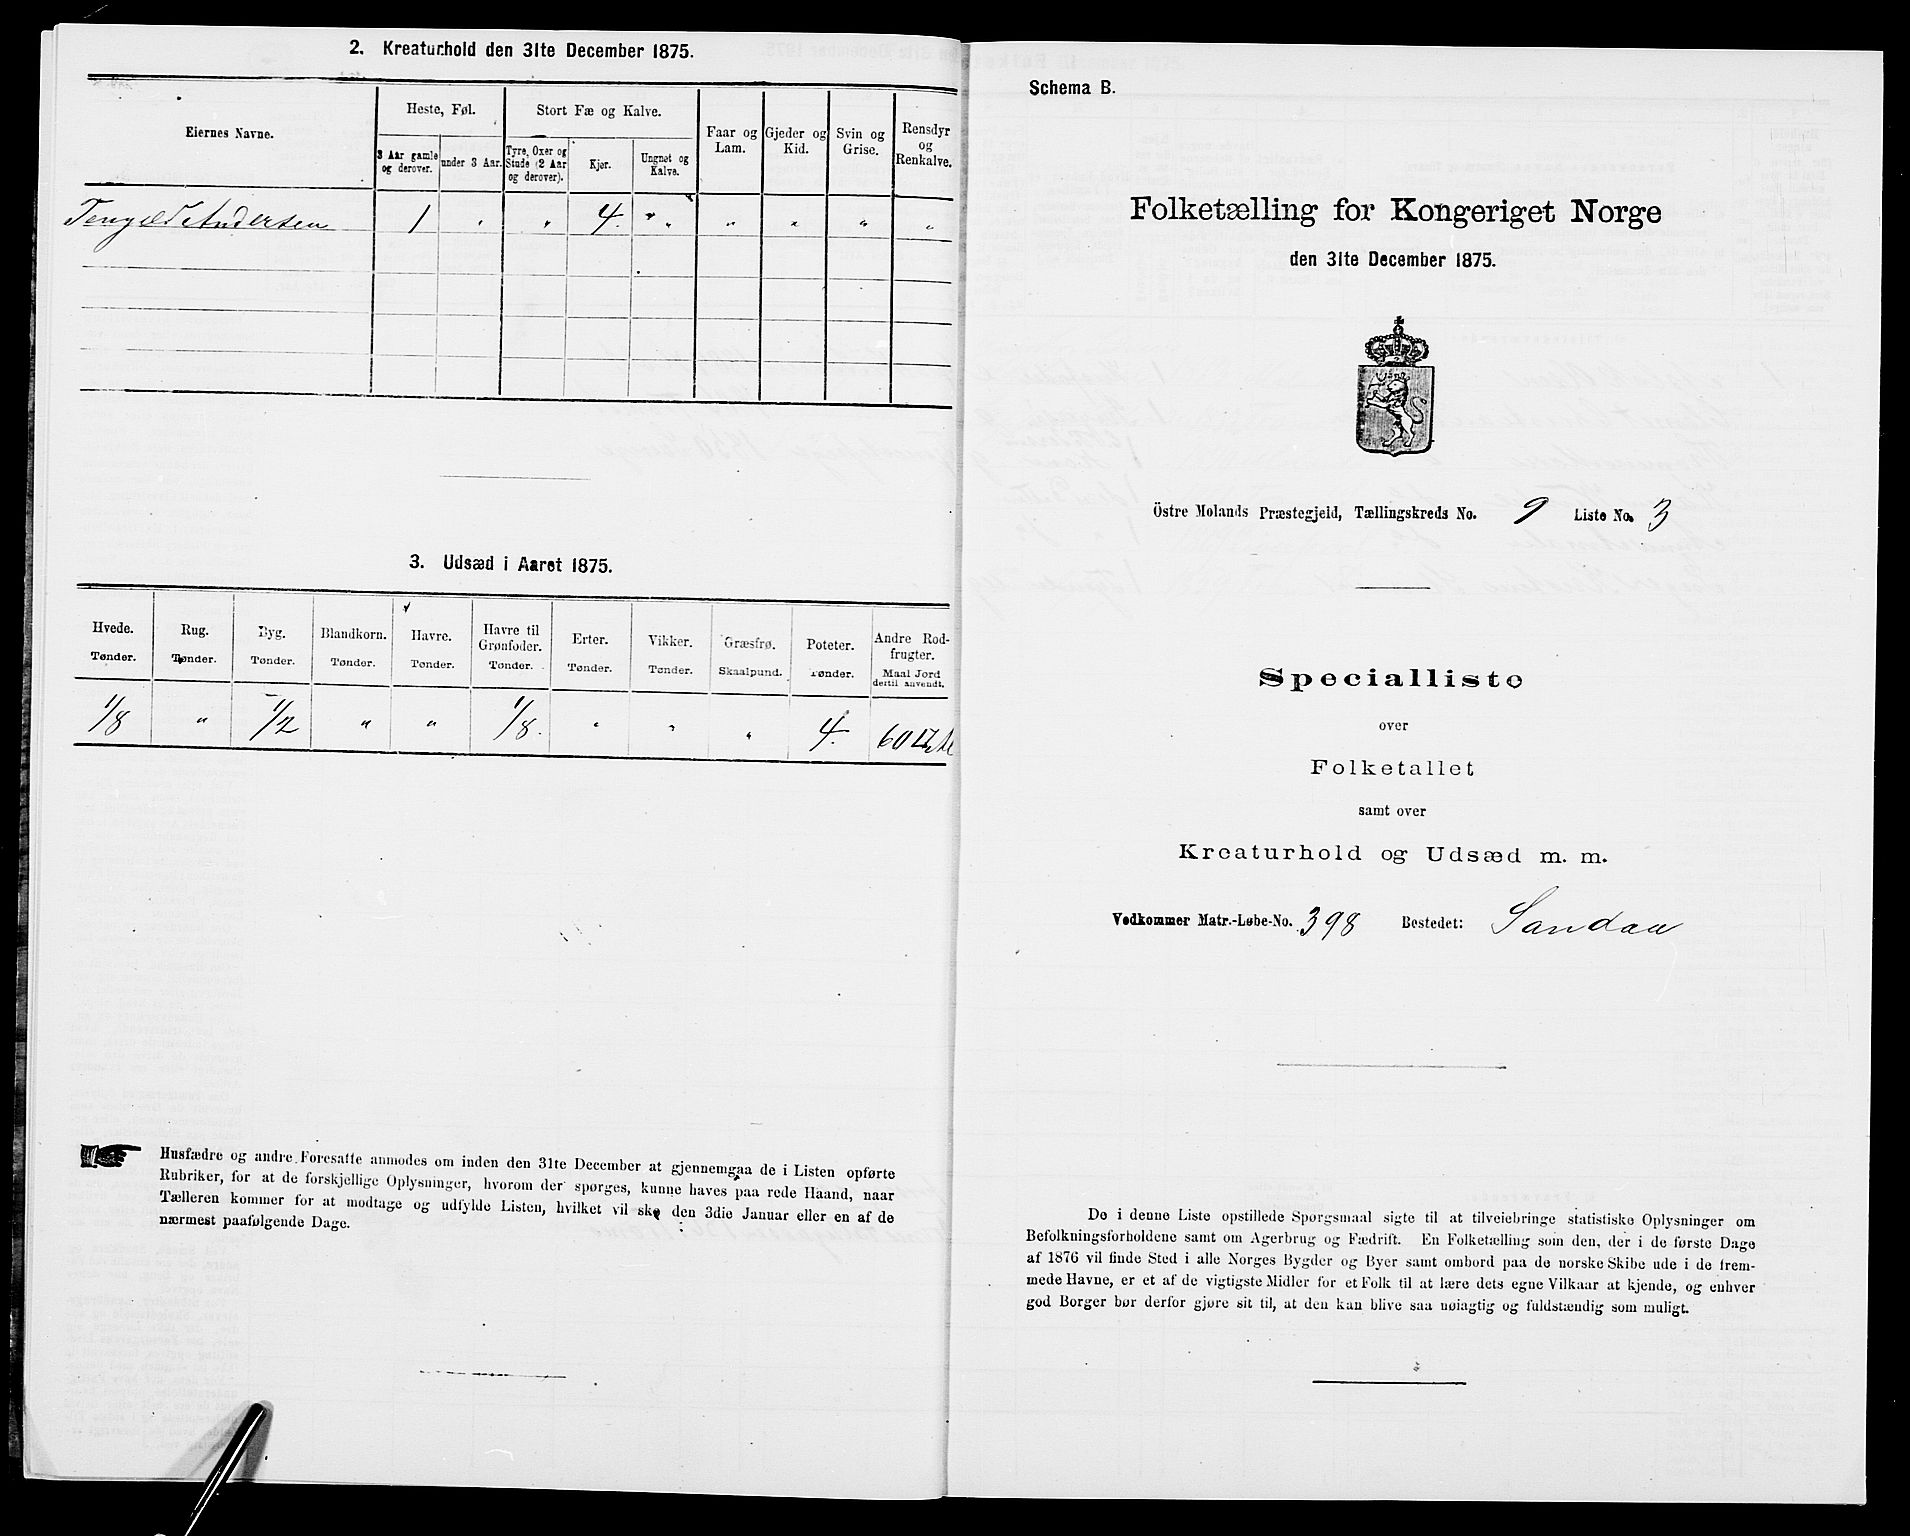 2. Kreaturhold den 31te December 1875.
Eiernes Navne.
Heste, Føl.
Stort Fæ og Kalve.
Faar og Lam.
Gjeder og Kid.
Svin og Grise.
Rensdyr og Renkalve.
3 Aar gamle og derover.
under 3 Aar.
Tyre, Oxer og Stude (2 Aar og derover).
Kjør.
Ungnøt og Kalve.
Andersen 1 " " 4. " " " " " "
3. Udsæd i Aaret 1875.
Hvede. Rug. Byg. Blandkorn. Havre. Havre til Grønfoder. Erter. Vikker. Græsfrø. Poteter. Andre Rodfrugter.
Tønder. Tønder. Tønder. Tønder. Tønder. Tønder. Tønder. Tønder. Skaalpund. Tønder. Maal Jord dertil anvendt.
1/8 " 1/2 " " 1/8. " " " 4. 60
Husfædre og andre Foresatte anmodes om inden den 31te December at gjennemgaa de i Listen opførte
Rubriker, for at de forskjellige Oplysninger, hvorom der spørges, kunne haves paa rede Haand, naar
Tælleren kommer for at modtage og udfylde Listen, hvilket vil ske den 3die Januar eller en af de
nærmest paafølgende Dage.
Schema B.
Folketælling for Kongeriget Norge
den 31te December 1875.
Östre Molands Præstegjeld, Tællingskreds No. 9 Liste No. 3
Specialliste
over
Folketallet
samt over
Kreaturhold og Udsæd m. m.
Vedkommer Matr.-Løbe-No. 398 Bestedet: Sandaa
De i denne Liste opstillede Spørgsmaal sigte til at tilveiebringe statistiske Oplysninger om
Befolkningsforholdene samt om Agerbrug og Fædrift. En Folketælling som den, der i de første Dage
af 1876 vil finde Sted i alle Norges Bygder og Byer samt ombord paa de norske Skibe ude i de frem-
mede Havne, er et af de vigtigste Midler for et Folk til at lære dets egne Vilkaar at kjende, og enhver
god Borger bør derfor gjøre sit til, at den kan blive saa nøiagtig og fuldstændig som muligt.